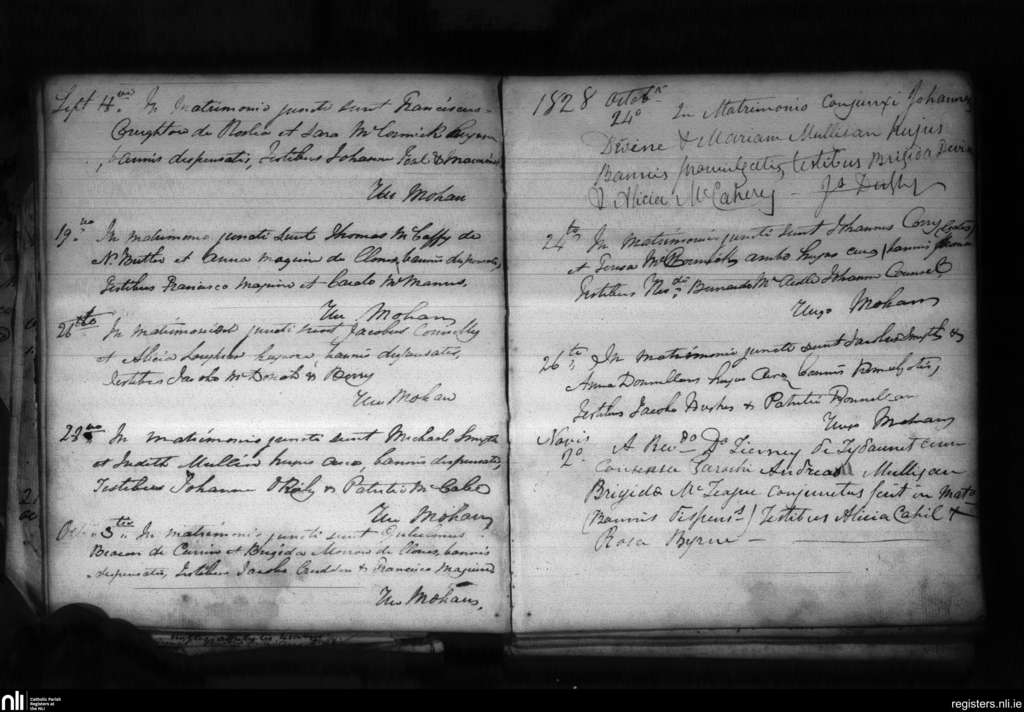 Sept 4to. In Matrimonio juncti sunt Franciscus
Creughton de Roslea et Sara McCormick hujus
bannis dispensatis, Testibus Johanne
Hu Mohan
19no In matrimonio juncti sunt Thomas McCaffy de
N Butler et Anna Maguire de Clones, bannis dispensatis,
Testibus Francisco Maguire et Carolo McManus.
Hu Mohan
26to In matrimonio juncti sunt Jacobus Connolly
et Alicia bannis dispensatis,
Testibus Jacobo & Berry
Hu Mohan
28vo In matrimonio juncti sunt Michael Smyth
et Judith Mullin hujus bannis dispensatis,
Testibus Johanne O Reily & Patritio McCabe
Hu Mohan
3tio In matrimonio juncti sunt
Beacon de Currin et Brigida Morrow de Clones, bannis
dispensatis, Testibus Jacobo Cudden & Francisco Maguire
Hu Mohan.
1828 Octobr
24o In Matrimonio conjunxi Johannem
Devine & Mariam Mulligan hujus
Bannis promulgatis, testibus Brigida Devin
& Alicia McCaherey - Js Duffy
24to In matrimonio juncti sunt Johannes Cony
et Teresa McCormick ambo hujus bannis
Testibus Bernardo McArdle Johanne Connell
Hugo Mohan
26to In matrimonio juncti sunt Jacobus Smyth &
Anna Donnellan hujus bannis
Testibus Jacobo Hughes & Patritio Donnellan
Hugo Mohan
Novis
2o A Revdo Do Tierney de Tydavnet cum
Consensu Parochi Andreas Mulligan
Brigidæ McTeague conjunctus fuit in Mato
(Bannis dispensis) Testibus Alicia Cahil &
Rosa Byrne —
nli
Catholic Parish
Registers at
the NLI
registers.nli.ie